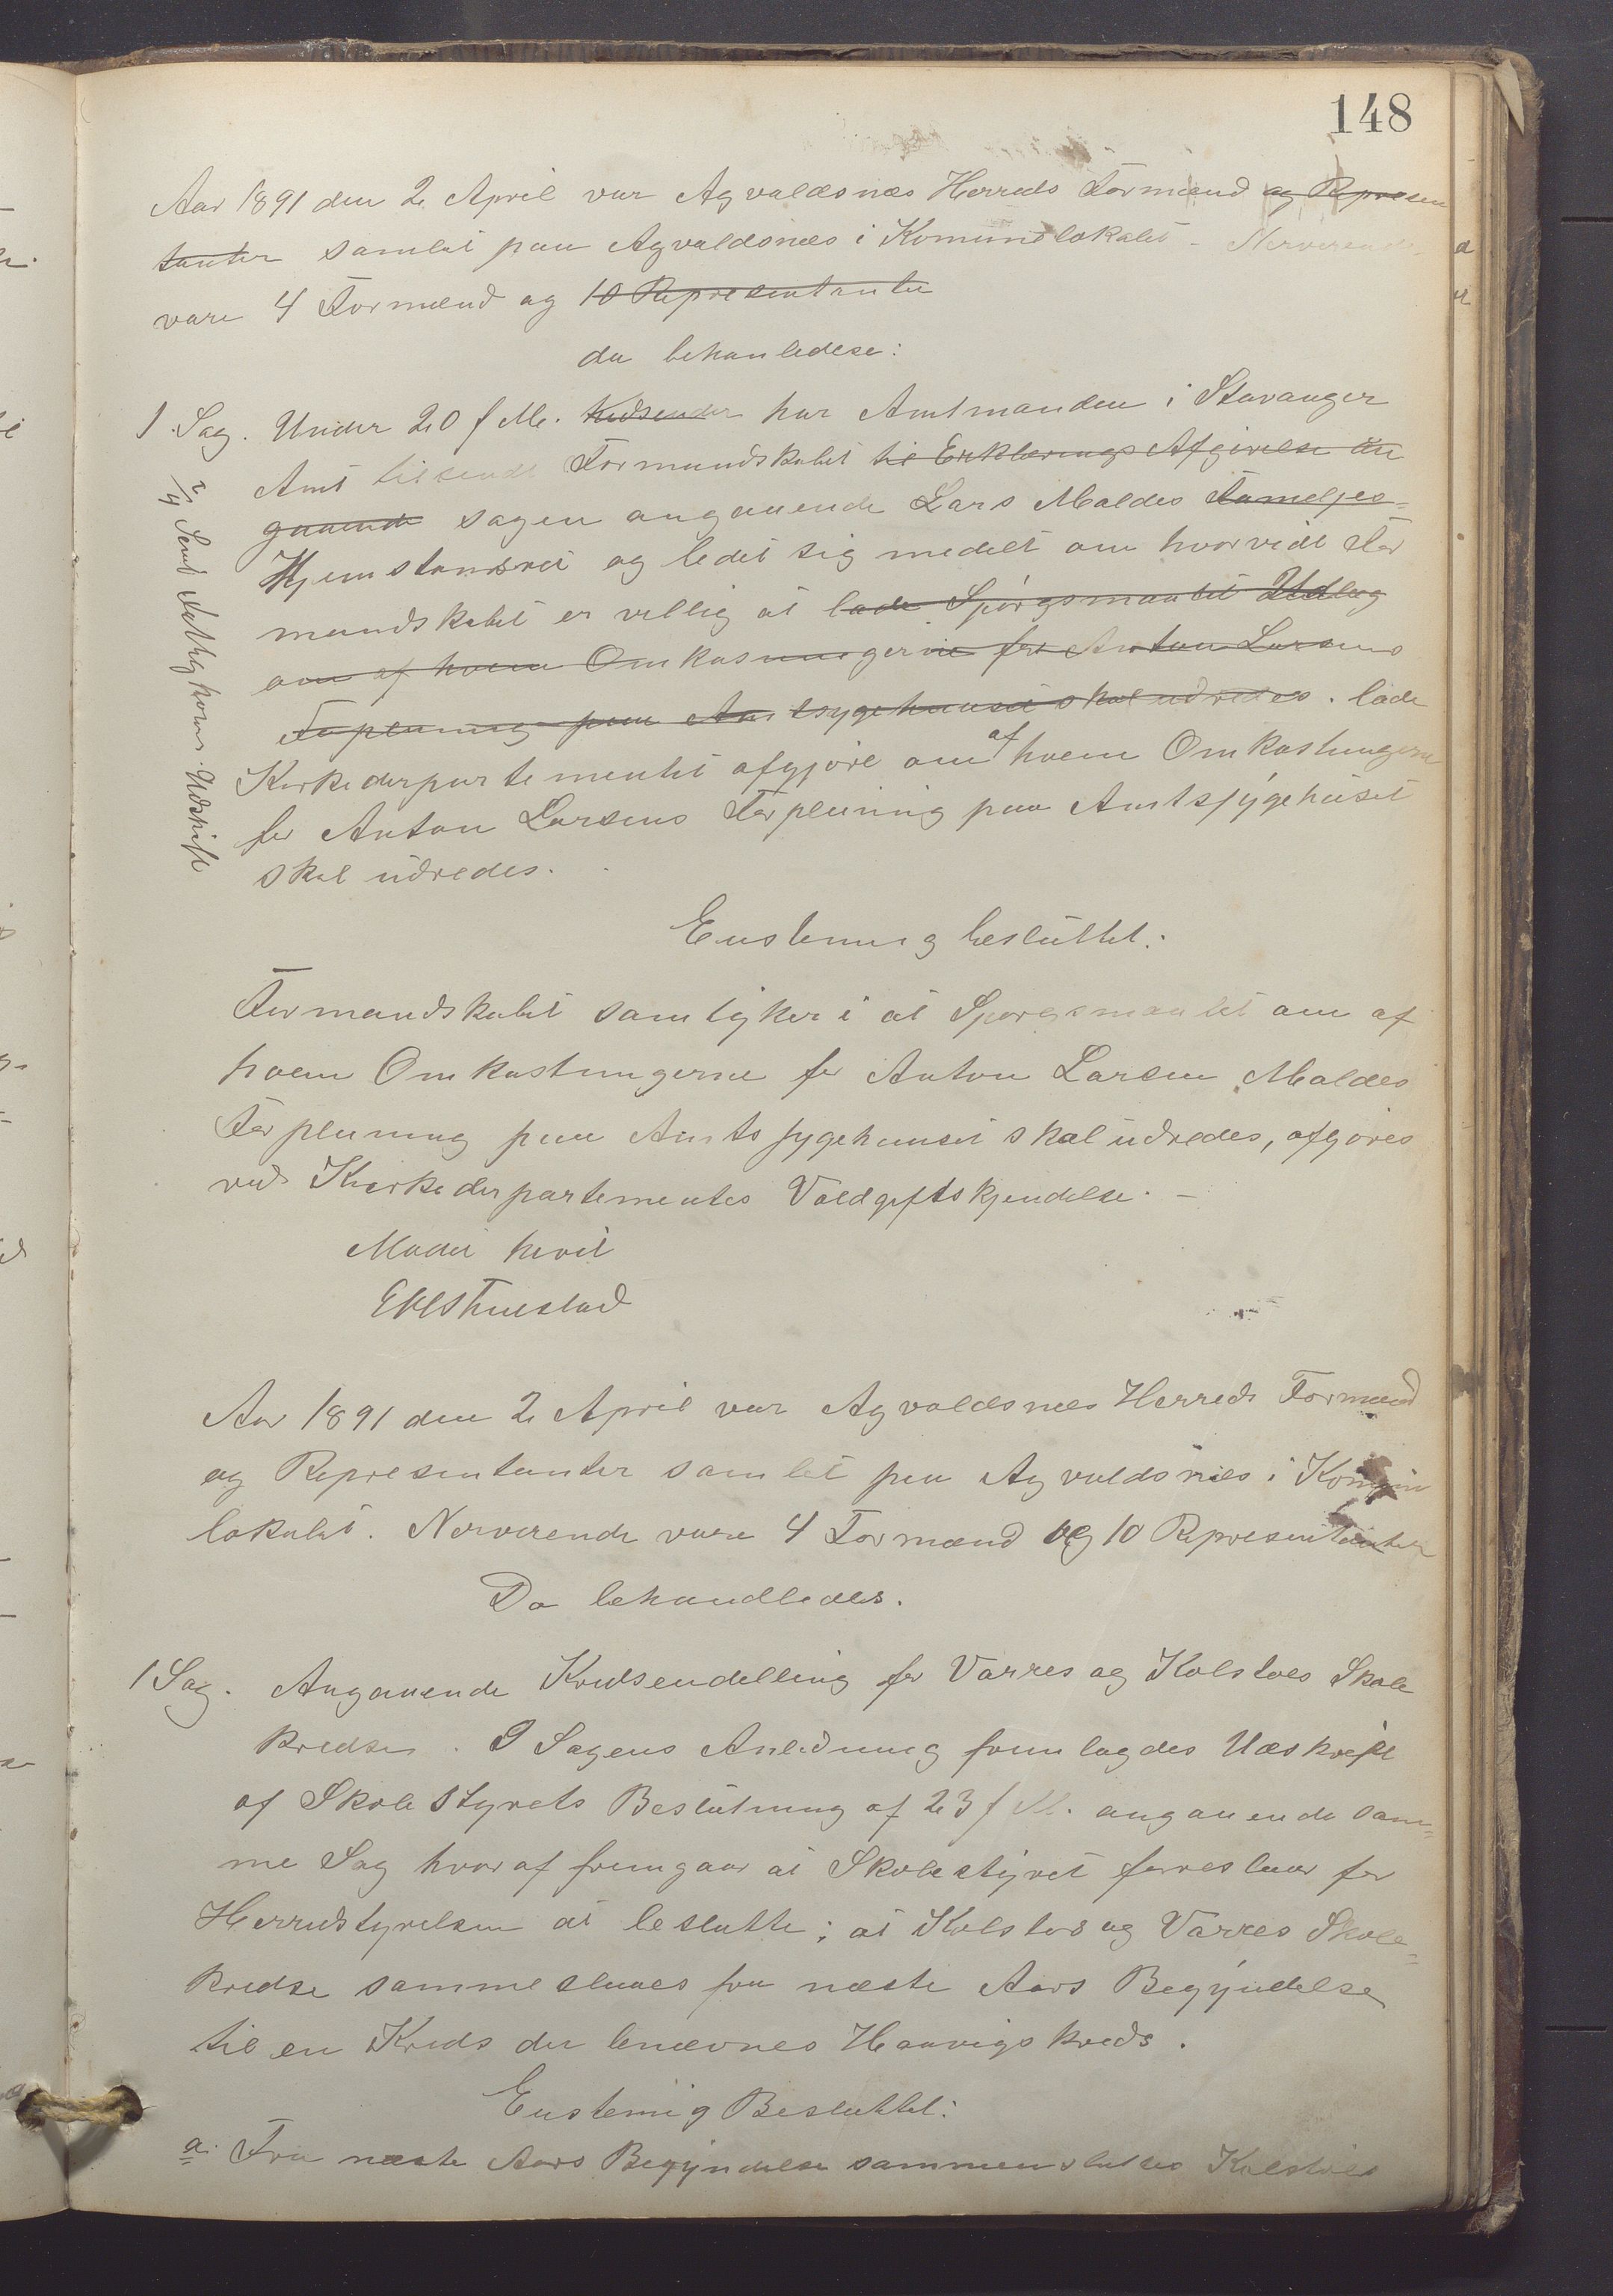 148
Aar 1891 den 2 April var Agvaldsnæs Herreds Formænd og Represen
tanter samlet paa Agvaldsnæs i Komunelokalet - Nerverende
vare 4 Formænd og 10 Representanter
da behanledese:
1 Sag. Under 20 f M. har Amtmanden i Stavanger
Amt tilsendt Formandskabet til Erklerings Afgivelse an
gaaende sagen angaaende Lars Maldes Fameljes-
Hjemstansret og ledet sig medelt om hvorvidt For
mandskabet er villig at lade Spørgsmaalet Udlæg
om af hvem Omkasningerne for Anton Larsens
Forplening paa Amtsygehuuset skal udredes. lade
Kirkederpartementet afgjøre om af hvem Omkastningerne
for Anton Larsens Forplening paa Amtssygehuset
skal udredes.
2/4 Sent Udskrift
Enstemig besluttet:
Formandskabet samtyker i at Spørgsmaalet om af
hvem Omkastningerne for Anton Larsen Maldes
Forplening paa Amtssygehuuset skal udredes, afgjøres
ved Kirkederpartementes Voldgiftskjendelse. -
Mødet hevet
Aar 1891 den 2 April var Agvaldsnæs Herreds Formænd
og Representanter samlet paa Agvaldsnæs i Komune
lokalet. Nerverende vare 4 Formænd og 10 Representanter
Da behandledes.
1 Sag. Angaaende Kredsendelling for Varres og Kolstøes Skole
kredse. I Sagens Anledning fremlagdes Udskreft
af Skolestyrets Beslutning af 23 f M. angaaende sam=
me Sag hvoraf fremgaar at Skolestyret foreslaar for
Herredstyrelsen at beslutte: at Kolstøs og Varres Skole=
kredse sammeslaaes fra næste Aars Begyndelse
til en Kreds der benævnes Haavigs kreds.
Enstemig Besluttet:
a. Fra næste Aars Begyndelse sammensluttes Kolstøes